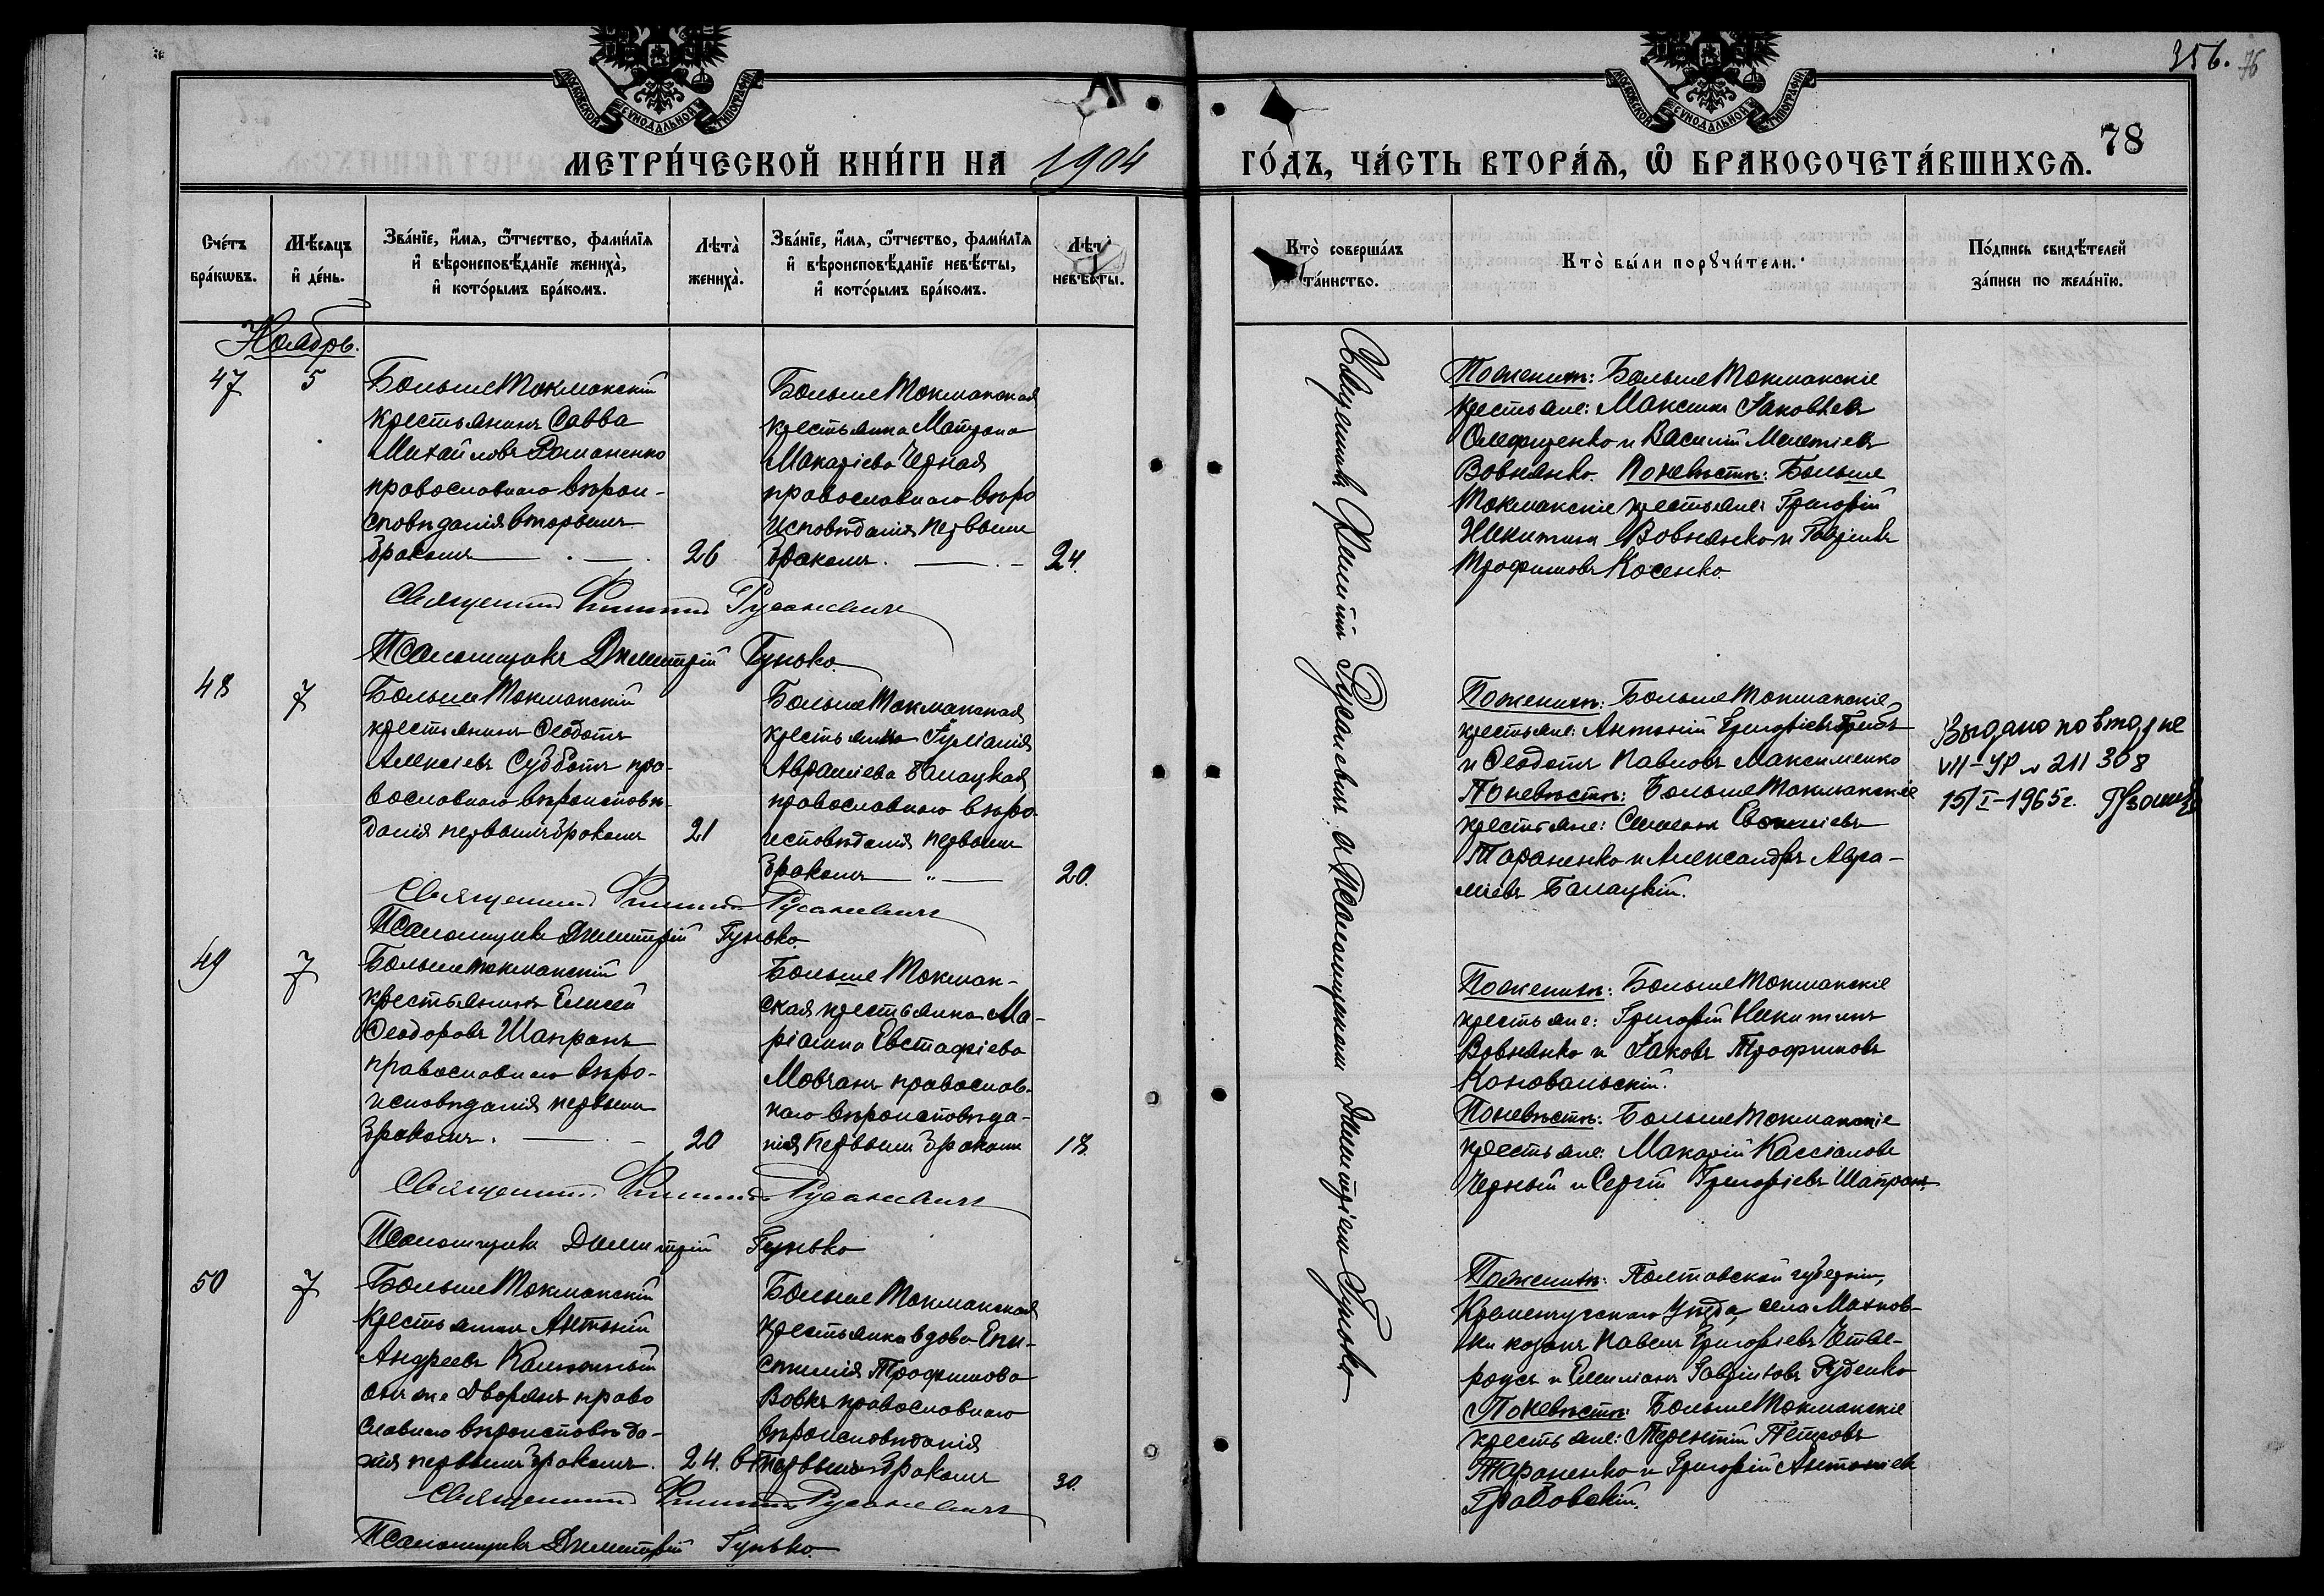 МОСКОВСКОЙ СѴНОДАЛЬНОЙ ТИПОГРАФІИ
МЕТРИ́ЧЕСКОЙ КНИ́ГИ НА 1904
Сче́тъ бра́кѡвъ.
Мѣ́сяцъ и҆ де́нь.
Зва́нїе, и҆́мя, ѻ҆́тчество, фами́лїя и҆ вѣроисповѣ́данїе жениха̀, и҆ кото́рымъ бра́комъ.
Лѣта̀ жениха̀.
Зва́нїе, и҆́мя, ѻ҆́тчество, фами́лїя и҆ вѣроисповѣ́данїе невѣ́сты, и҆ кото́рымъ бра́комъ.
Лѣта̀ невѣ́сты.
Ноябрь.
47
5
БольшеТокмакскій
крестьянинъ Савва
Михайловъ Романенко
православнаго вѣрои-
сповѣданія вторымъ
бракомъ
26
БольшеТокмакская
крестьянка Матрона
Макаріева Черная
православнаго вѣро
исповѣданія первымъ
бракомъ.
24.
Священникъ Филиппъ Русаневичъ
Псаломщикъ Димитрій Гунько.
48
7
БольшеТокмакскій
крестьянинъ Ѳеодотъ
Алексіевъ Субботъ пра-
вославнаго вѣроисповѣ-
данія первымъ бракомъ
21
БольшеТокмакская
крестьянка Іуліанія
Авраміева Балацкая
православнаго вѣро-
исповѣданія первымъ
бракомъ "
20.
Священникъ Филиппъ Русаневичъ
Псаломщикъ Димитрій Гунько.
49
7
Большетокмакскій
крестьянинъ Елисей
Ѳеодоровъ Шапранъ
православнаго вѣро-
исповѣданія первымъ
бракомъ.
20
Больше Токмак-
ская крестьянка Ма-
ріанна Евстафіева
Мовчанъ православ-
наго вѣроисповѣда-
нія первымъ бракомъ
18.
Священникъ Филиппъ Русаневичъ
Псаломщикъ Димитрій Гунько
50
7
БольшеТокмакскій
крестьянинъ Антоній
Андреевъ
онъ же Дворянъ право
славнаго вѣроисповѣда-
нія первымъ бракомъ.
24.
БольшеТокмакская
крестьянка вдова Епи-
стимія Трофимова
Вовкъ православнаго
вѣроисповѣданія
вторымъ бракомъ
30.
Священникъ Филиппъ Русаневичъ
Псаломщикъ Димитрій Гунько.
356. 76
78
МОСКОВСКОЙ СѴНОДАЛЬНОЙ ТИПОГРАФІИ
ГО́ДЪ, ЧА́СТЬ ВТОРА́Я, Ѡ҆ БРАКОСОЧЕТА́ВШИХСЯ.
Кто̀ соверша́лъ та́инство.
Кто̀ бы́ли порꙋчи́тели.
По́дпись свидѣ́телей за́писи по жела́нїю.
Священникъ Филиппъ Русаневичъ съ Псаломщикомъ Димитріемъ Гунько
По женихѣ: БольшеТокмакскіе
крестьяне: Максимъ Іаковлевъ
Онефриенко и Василій Мелетіевъ
Вовнянко. По невѣстѣ: Больше
Токмакскіе крестьяне: Григорій
Никитинъ Вовнянко и Гавріилъ
Трофимовъ Косенко.
По женихѣ: БольшеТокмакскіе
крестьяне: Антоній Григоріевъ Грибъ
и Ѳеодотъ Павловъ Максименко
По невѣстѣ: БольшеТокмакскіе
крестьяне: Симеонъ
Тараненко и Александръ Авра-
міевъ Балацкій.
Выдано повторне
VII-УР № 211308
15/I-1965г.
По женихѣ: БольшеТокмакскіе
крестьяне: Григорій Никитинъ
Вовнянко и Іаковъ Трофимовъ
Коновальскій.
По невѣстѣ: БольшеТокмакскіе
крестьяне: Макарій Кассіановъ
Черный и Сергій Григоріевъ Шапранъ
По женихѣ: Полтавской губерніи,
Кременчугскаго Уѣзда, села Махнов-
ки козакъ Павелъ Григоріевъ Четве-
роусъ и Емиліанъ Гавріиловъ Руденко
По невѣстѣ: БольшеТокмакскіе
крестьяне: Терентій Петровъ
Тараненко и Григорій Антоніевъ
Грабовскій.